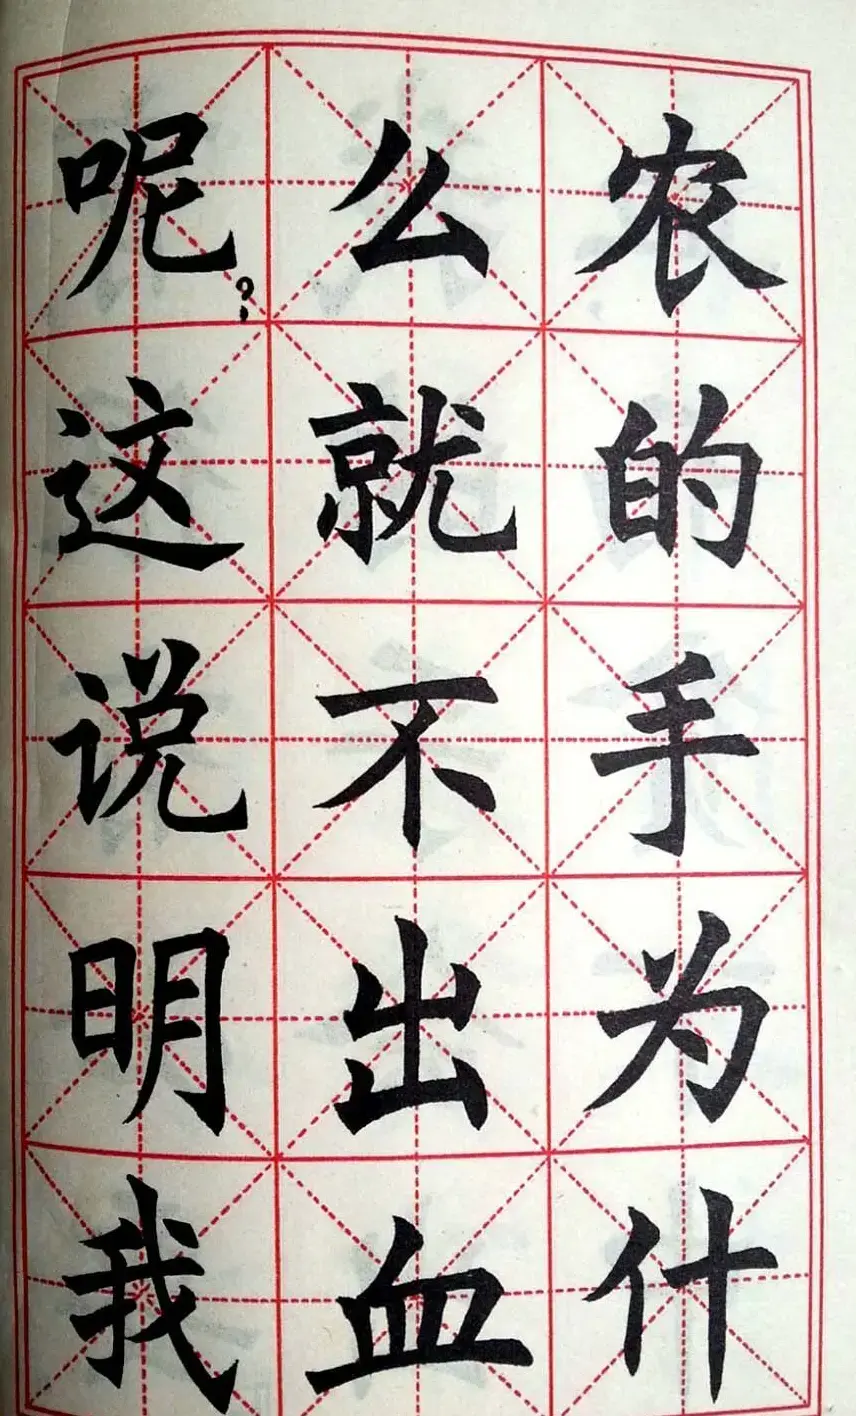 农的手为什
么就不出血
呢?这说明我